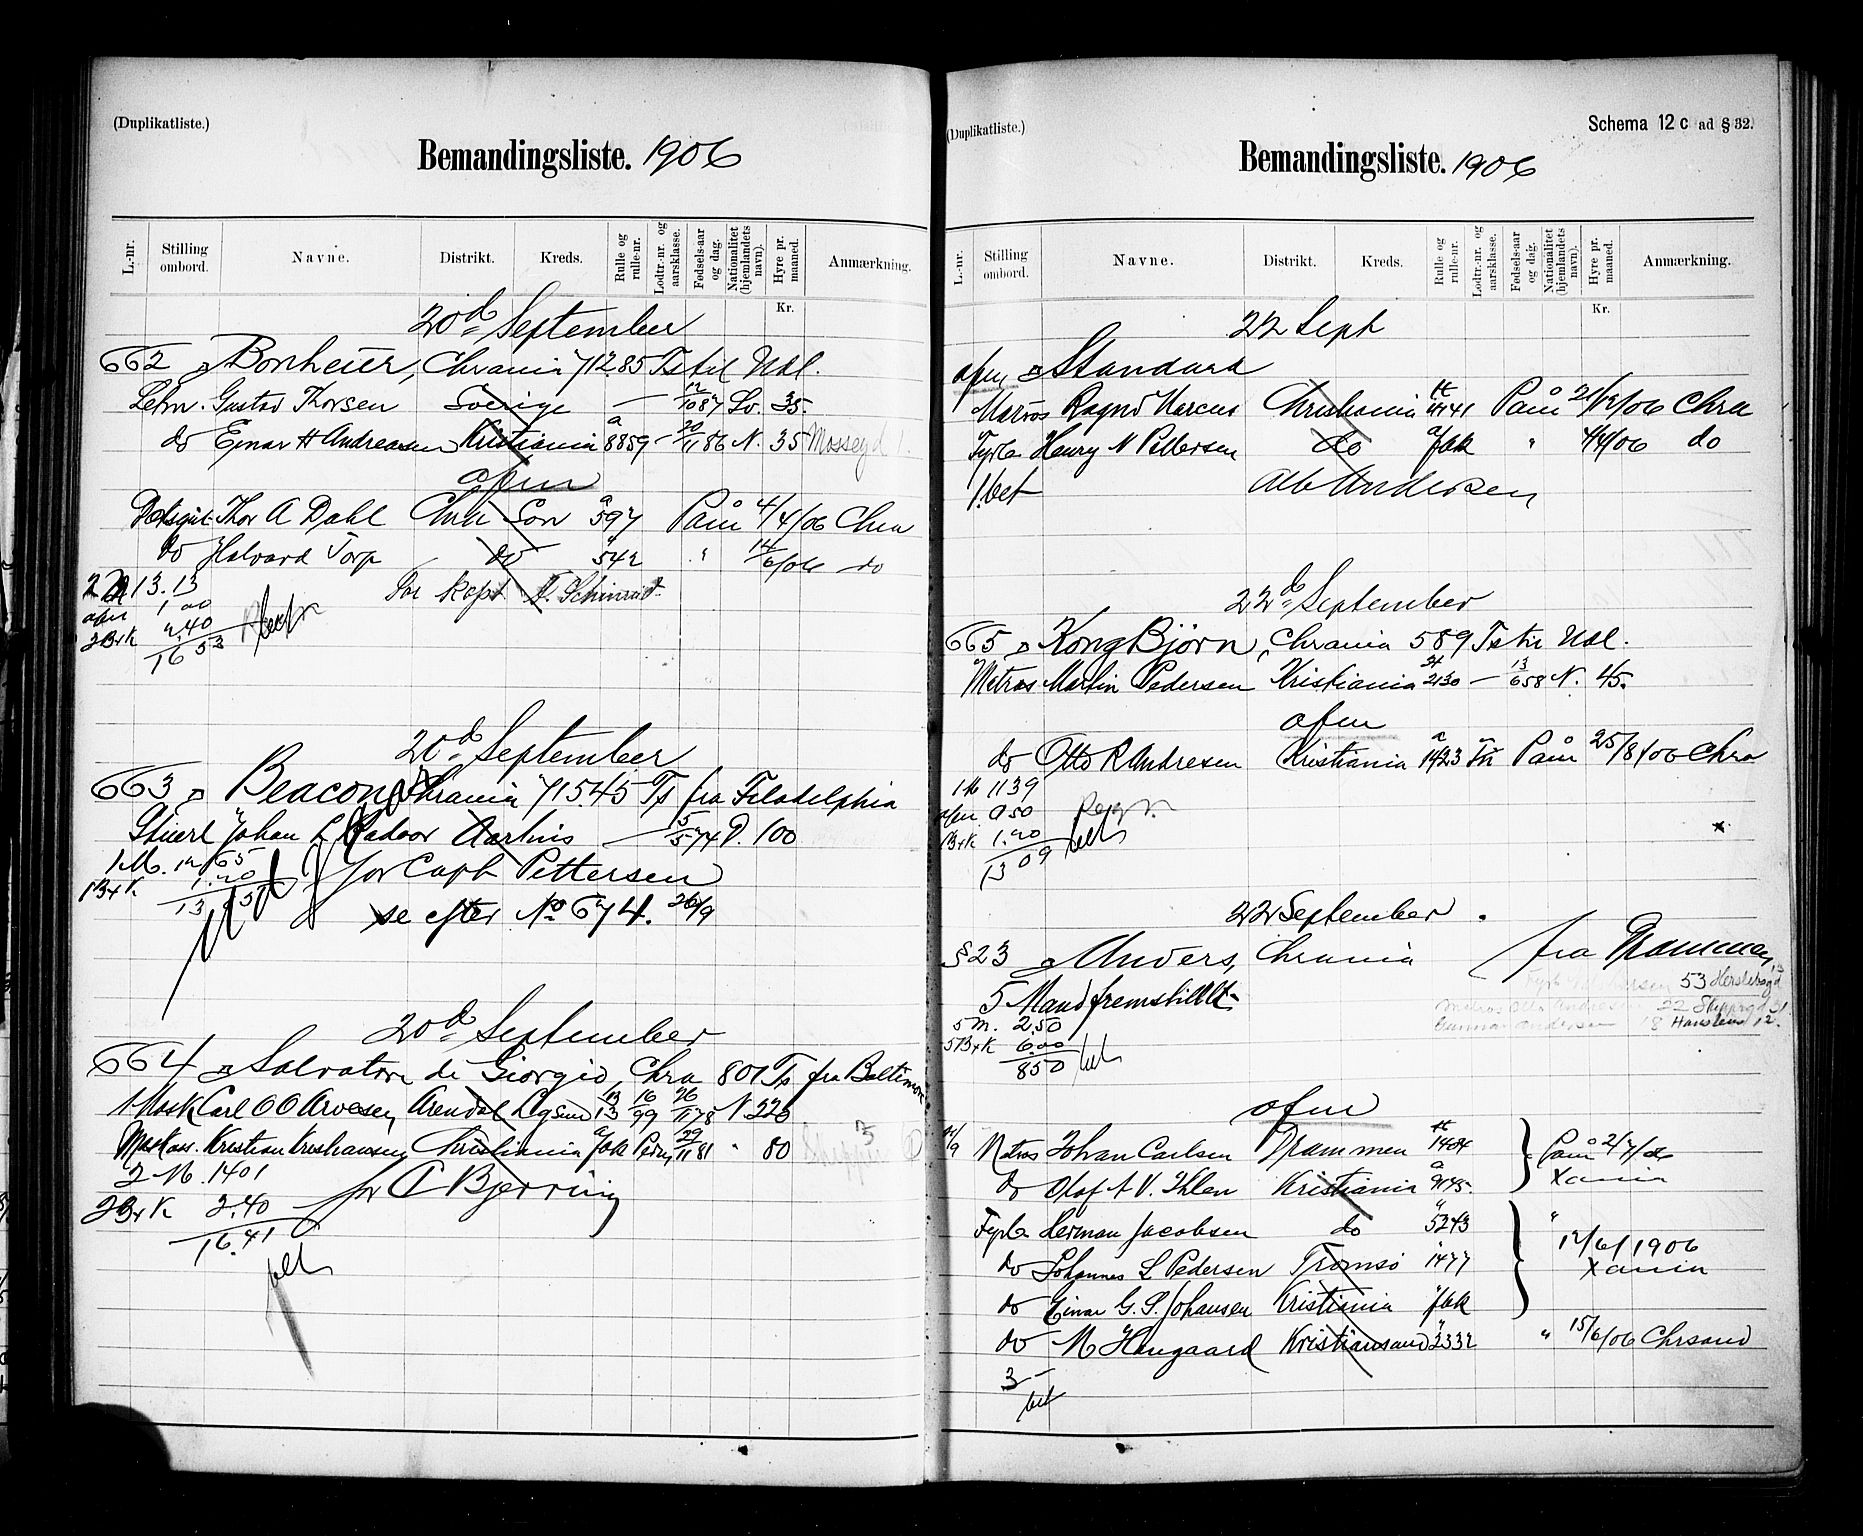 (Duplikatliste.)
Bemandingsliste. 1906
L.-nr.
Stilling ombord.
Navne.
Distrikt.
Kreds.
Rulle og rulle-nr.
Lodtr.-nr. og aarsklasse.
Fødsels-aar og dag.
Nationalitet (hjemlandets navn).
Hyre pr. maaned.
Anmærkning.
Kr.
20d September
662 Bonheur, Chrania 71285 Ts til Udl.
Letm. Gustav Thorsen Sverige — 12/10 87 Sv. 35.
do Ejnar H Andreasen Kristiania a 8859 - 20/11 86 N. 35 Mossegd
afm
Thor A Dahl Chra Son a 597 Paam 4/4/06 Chra
do Halvard Torp do " 542 " 14/6/06 do
2 M 13.13
afm 1.00
2B+K 2.40
16 53
for kapt Schmidt
20d September
663 Beacon, Chrania 71545 Ts fra Filadelphia
Stuert Johan L Aarhus — 5/5 74 D. 100
1 M. 12 65
1B+K 1.20
13 85
for Capt Pettersen
se efter No 674. 26/9
20d September
664 Salvatore di Giorgio, Chra 801 Ts fra Baltimore
1 Mask Carl O O Arvesen Arendal 13 16/99 26/11 78 N 220
Kristian Kristiansen Christiania a fak 29/11 81 " 80
2 M. 1401
2B+K 2.40
16.41
for C Bjerring
bet
(Duplikatliste.)
Schema 12 c ad § 32.
Bemandingsliste. 1906
L.-nr.
Stilling ombord.
Navne.
Distrikt.
Kreds.
Rulle og rulle-nr.
Lodtr.-nr. og aarsklasse.
Fødsels-aar og dag.
Nationalitet (hjemlandets navn).
Hyre pr. maaned.
Anmærkning.
Kr.
22 Sept
afm Standard
Matros Ragnv Marcus Christiania Paam Chra
Fyrb Henry N Pettersen do a fak " 4/4/06 do
1. bet
Alb Andersen
22d September
665 Kong Bjørn, Chrania 589 Ts til Udl.
Matros Martin Pedersen Kristiania 2130 — 13/6 58 N. 45.
afm
do Otto R Andresen Kristiania a 1423 Paam 25/8/06 Chra
1 M 1139
afm 0 50
B+K 1.20
13 09
bet
22 September.
§ 23 Anvers, Chrania fra Drammen
5 Mand fremstillet
5 M. 2.50
5B+K 6.00
8 50 bet
afm
Matros Johan Carlsen Drammen 1484
Paam 2/7/06
do Olaf A V. Ihlen Kristiania a 9145.
Xania
Fyrb Herman Jacobsen do " 5243
"
do Johannes L Pedersen Tromsø " 1477
12/6/1906
Xania
do Einar G. S. Johansen Kristiania " fak
do M Haugaard Kristiansand 2332 " 15/6/06 Chrsand
3 -
bet